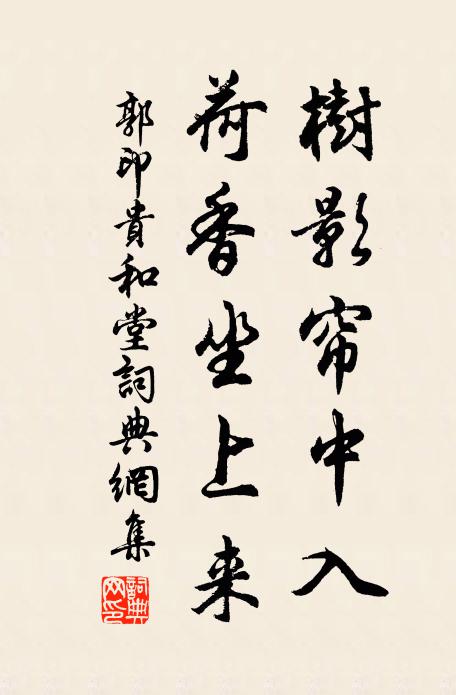 樹影帘中入
荷香坐上来
郭印貴和堂詞典網集
詞典网印